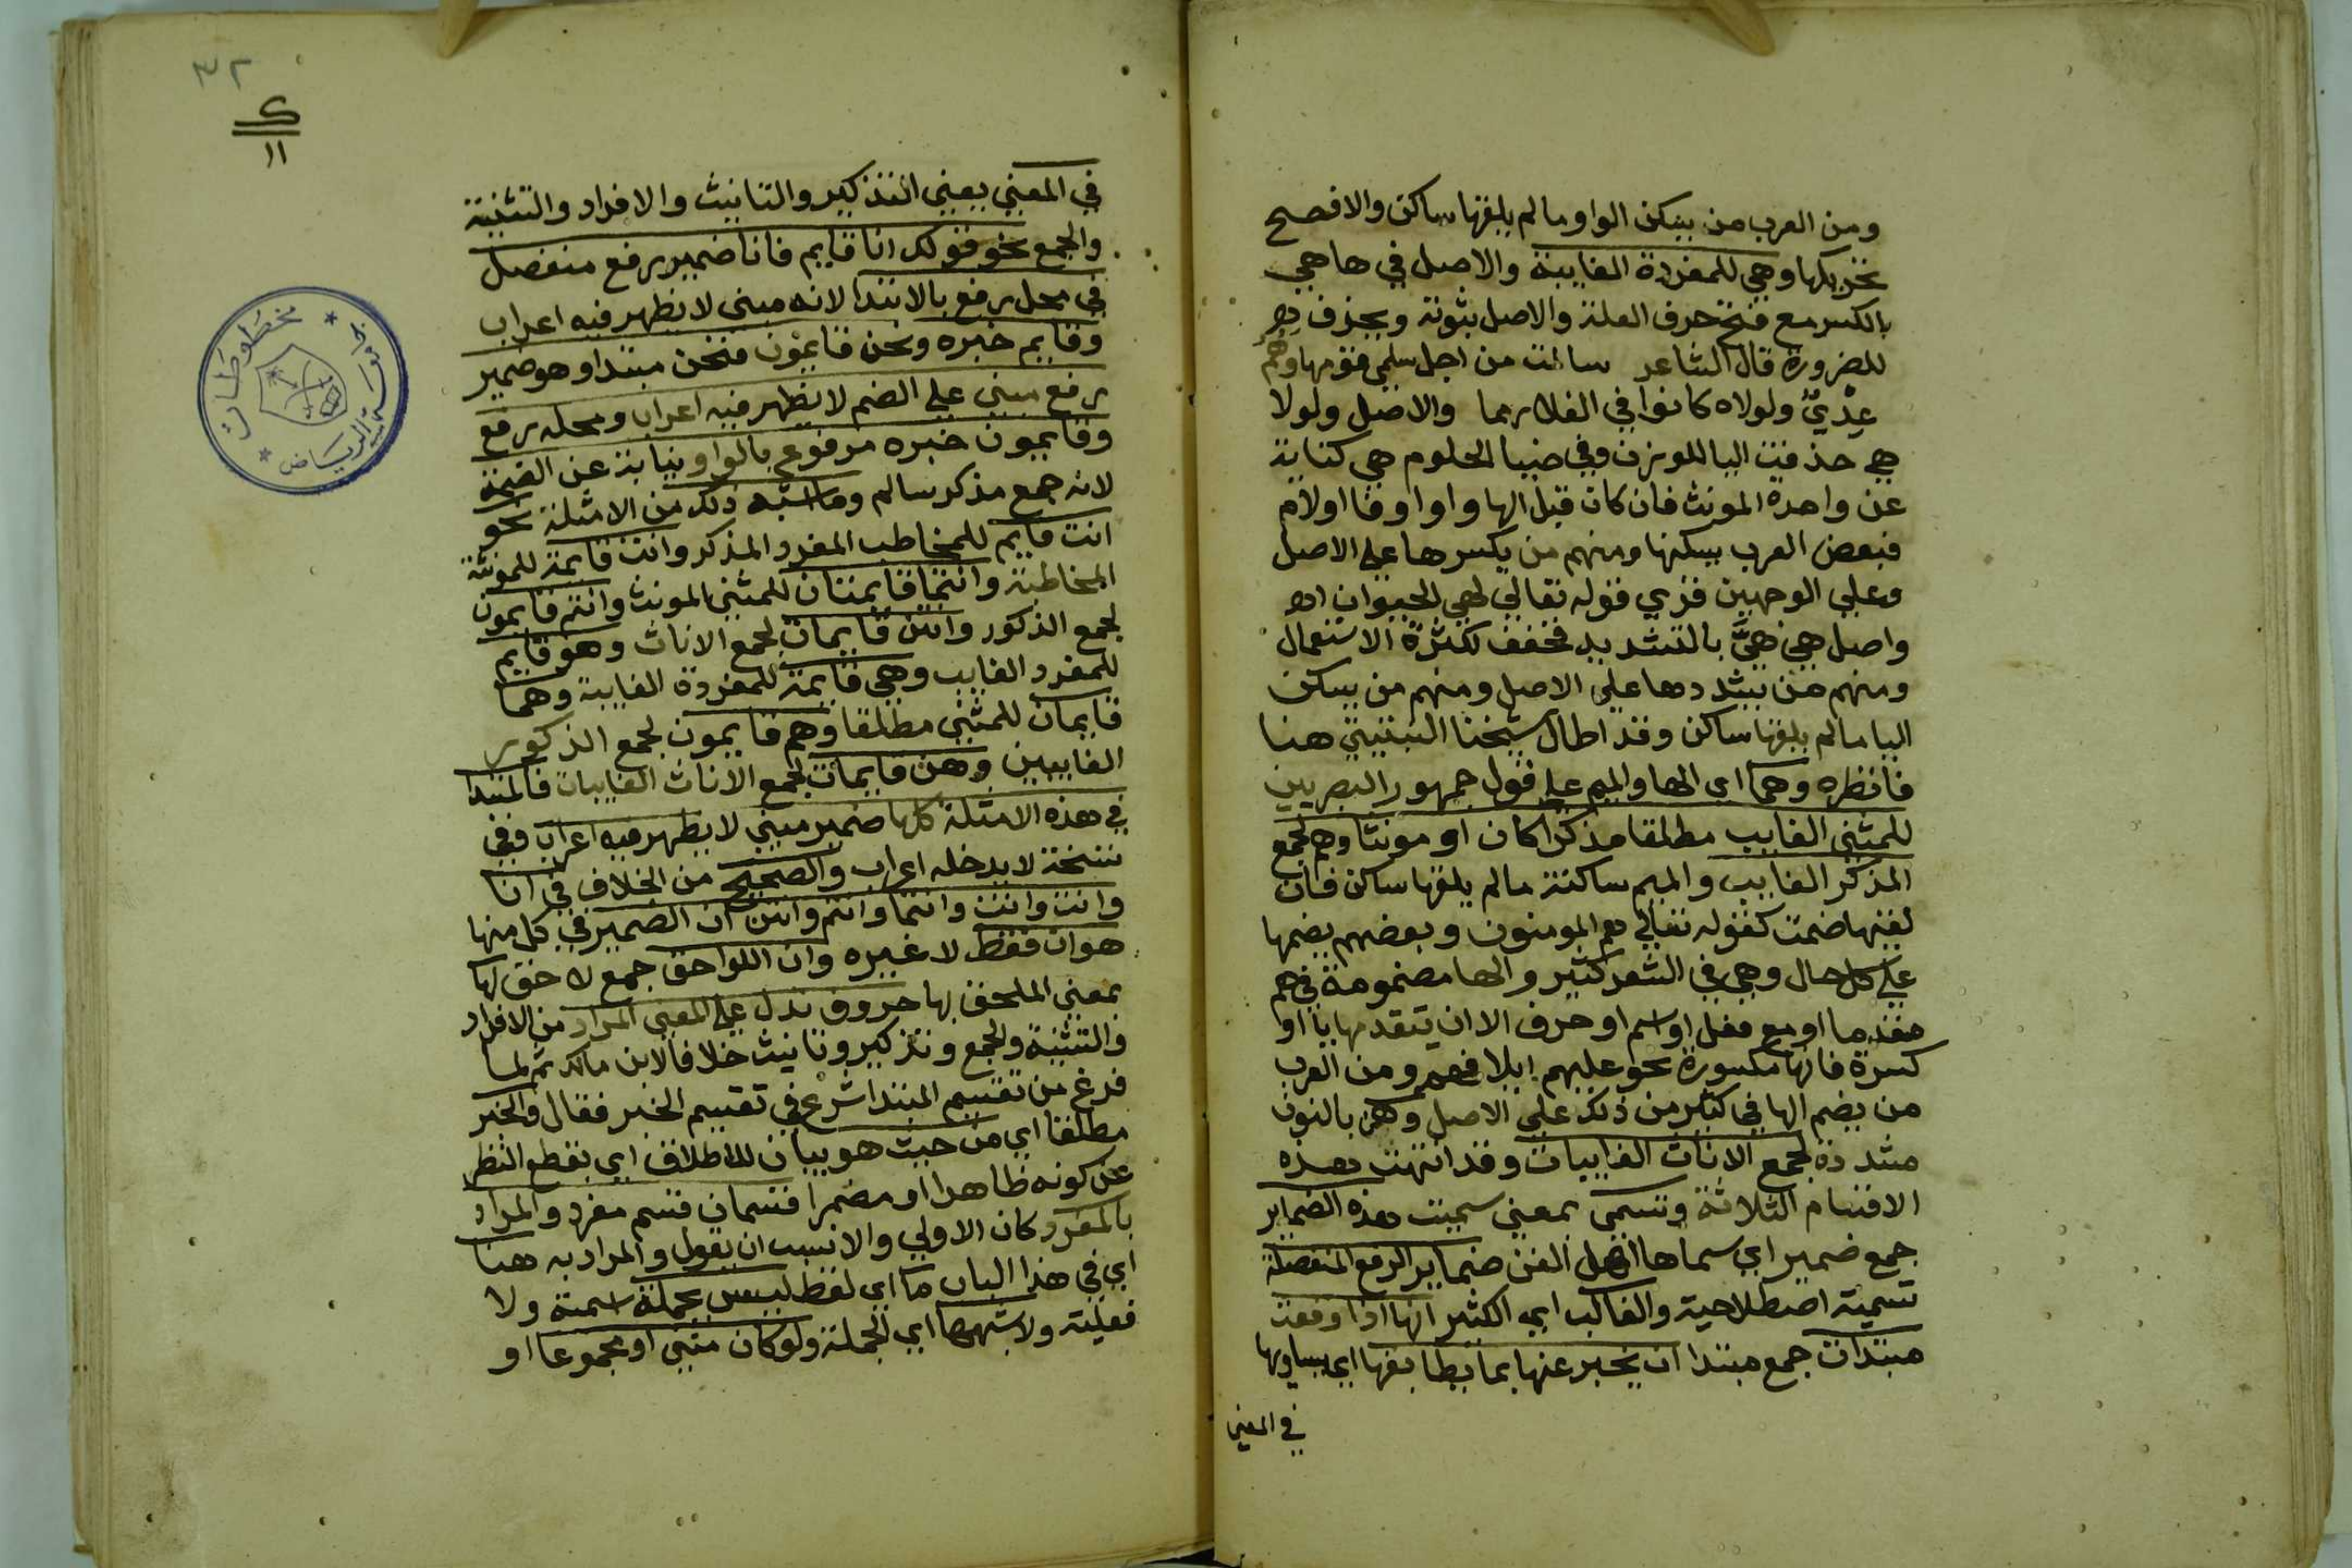 ومن العرب من يسكن الواو ما لم يلقها ساكن والافصح
تحريكها وهي للمفردة الغايبة والاصل في ها هي
بالكسر مع فتح حرف العلة والاصل ثبوته ويحذف
للضرورة قال الشاعر سالت من اجل سلمى قومها وهم
عدي ولولاه كانوا في الفلا رمما والاصل ولولا
هي حذفت اليا للوزن وفي ضيا الحلوم هي كناية
عن واحدة المونث فان كان قبل الها واو او فا او لام
فبعض العرب يسكنها ومنهم من يكسرها على الاصل
وعلى الوجهين قري قوله تعالي لهي الحيوان اه
واصل هي هيّ بالتشديد فخفف لكثرة الاستعمال
ومنهم من يشددها على الاصل ومنهم من يسكن
اليا ما لم يلقها ساكن وقد اطال شيخنا الشبيني هنا
فانظره وهما اي الها والميم على قول جمهور البصريين
للمثنى الغايب مطلقا مذكرا كان او مونثا وهم لجمع
المذكر الغايب والميم ساكنة ما لم يلقها ساكن فان
لقيها ضمت كقوله تعالى هم المومنون وبعضهم يضمها
على كل حال وهي في الشعر كثير والها مضمومة في هم
مفردها او مع فعل او اسم او حرف الا ان يتقدمها يا او
كسرة فانها مكسورة نحو عليهم ومن العرب
من يضم الها في كثير من ذلك على الاصل وهن بالنون
مشددة لجمع الاناث الغايبات وقد انتهت بهذه
الاقسام الثلاثة وتسمى بمعنى سميت هذه الضماير
جمع ضمير اي سماها اهل الفن ضماير الرفع المنفصلة
تسمية اصطلاحية والغالب اي الكثير انها اذا وقعت
مبتدات جمع مبتدا ان يخبر عنها بما يطابقها اي يساويها
في المعني
٣٢
١١
في المعني بمعني التذكير والتانيث والافراد والتثنية
والجمع نحو قولك انا قايم فانا ضمير رفع منفصل
في محل رفع بالابتدا لانه مبنى لا يظهر فيه اعراب
وقايم خبره ونحن قايمون فنحن مبتدا وهو ضمير
رفع مبني على الضم لا يظهر فيه اعراب ومحله رفع
وقايمون خبره مرفوع بالواو نيابة عن الضمة
لانه جمع مذكر سالم وما اشبه ذلك من الامثلة نحو
انت قايم للمخاطب المفرد المذكر وانت قايمة للمونثة
المخاطبة وانتما قايمتان للمثنى المونث وانتم قايمون
لجمع الذكور وانتن قايمات لجمع الاناث وهو قايم
للمفرد الغايب وهي قايمة للمفردة الغايبة وهما
قايمان للمثنى مطلقا وهم قايمون لجمع الذكور
الغايبين وهن قايمات لجمع الاناث الغايبات فالمبتدا
في هذه الامثلة كلها ضمير مبني لا يظهر فيه اعراب وفي
نسخة لا يدخله اعراب والصحيح من الخلاف في انا
وانت وانت وانتما وانتم وانتن ان الضمير في كل منها
هو ان فقط لا غيره وان اللواحق جمع لاحق لها
بمعني الملحق بها حروف تدل على المعنى المراد من الافراد
والتثنية والجمع وتذكير وتانيث خلافا لابن مالك ثم لما
فرغ من تقسيم المبتدا شرع في تقسيم الخبر فقال والخبر
مطلقا اي من حيث هو بيان للاطلاق اي بقطع النظر
عن كونه ظاهرا او مضمرا قسمان قسم مفرد والمراد
بالمفرد كان الاولي والانسب ان يقول والمراد به هنا
اي في هذا الباب ما اي لفظ ليس بجملة اسمية ولا
فعلية ولا شبهها اي الجملة ولو كان مثنى او مجموعا او
مخطوطات
جامعة الرياض